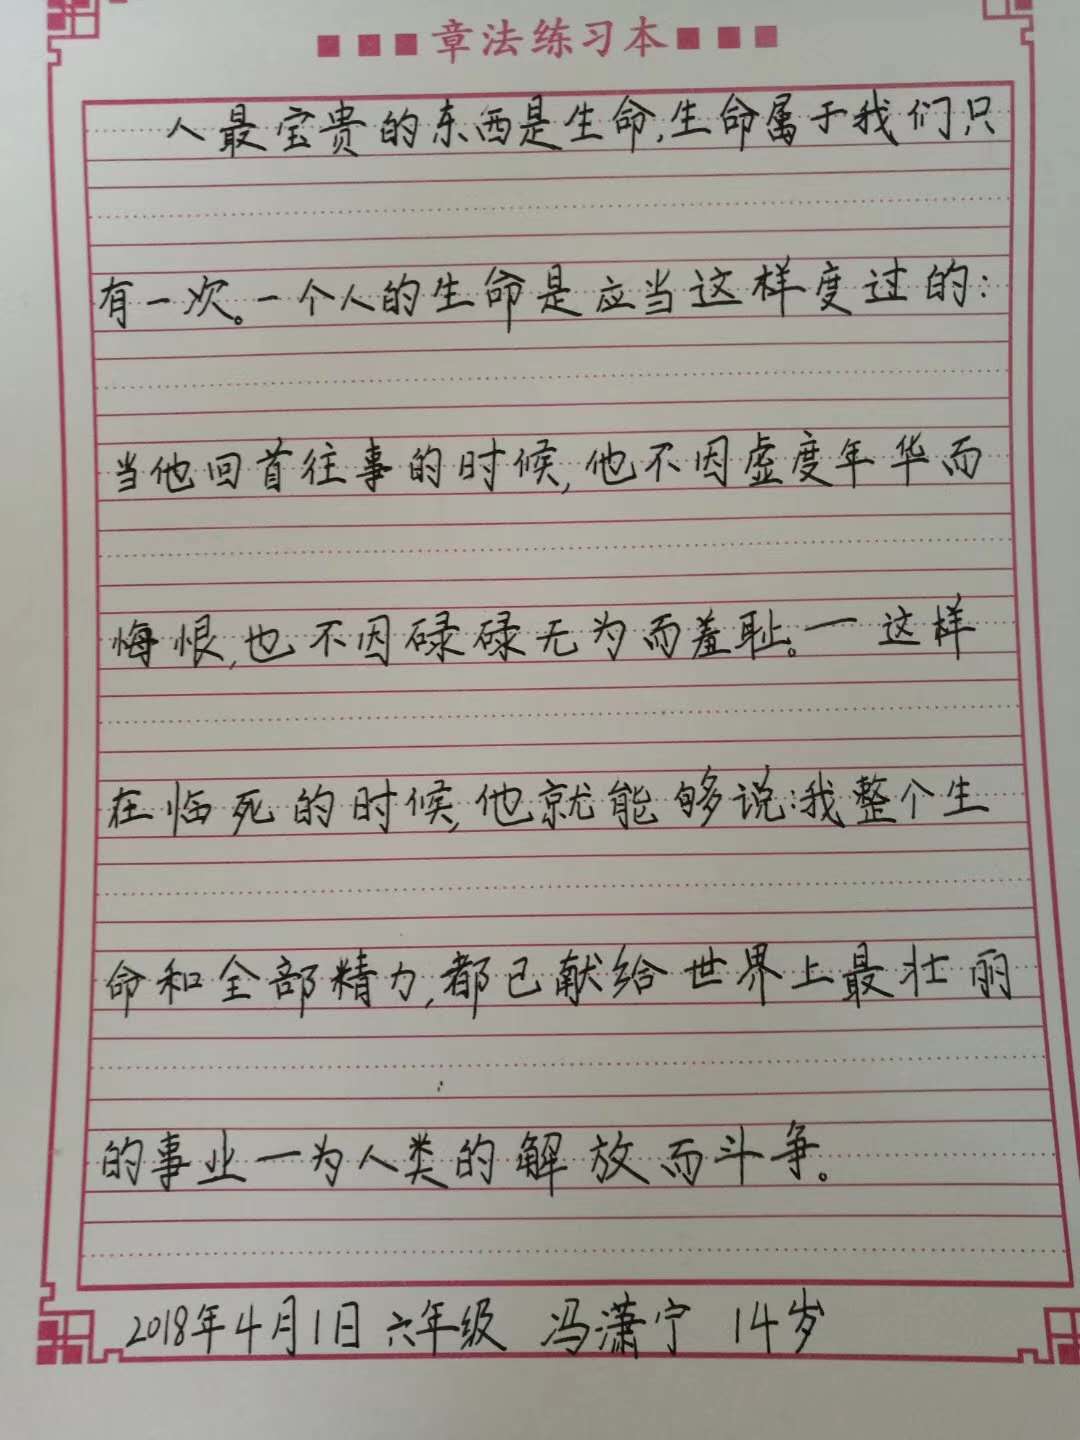 章法练习本
人最宝贵的东西是生命,生命属于我们只
有一次。一个人的生命是应当这样度过的:
当他回首往事的时候,他不因虚度年华而
悔恨,也不因碌碌无为而羞耻。一这样
在临死的时候,他就能够说:我整个生
命和全部精力,都已献给世界上最壮丽
的事业一为人类的解放而斗争。
2018年4月1日 六年级 冯潇宁 14岁